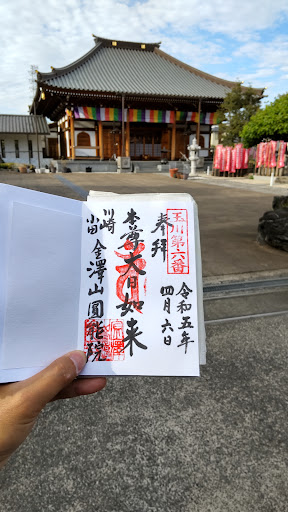 玉川第六番
奉拝
令和五年
四月六日
本尊大日如来
川崎
小田
金澤山圓能院